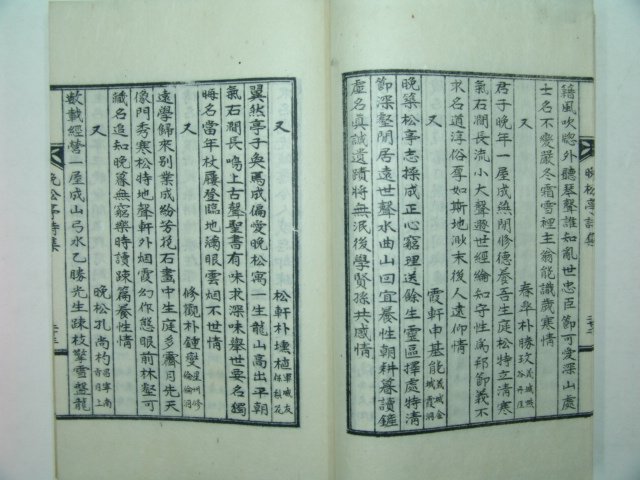 籟風吹窓外聽琴聲誰知亂世忠臣節可愛深山處
士名不變嚴冬霜雪裡主翁能識歲寒情
又
春皐朴勝玫
君子晚年一屋成繞閒修德養吾生庭松特立淸寒
氣石澗長流小大聲遯世經綸如子性爲邦節義不
求名道淳俗厚如斯地湫末後人送仰情
又
霞軒申基能
晚築松亭志操成正心窮理送餘生靈區擇處特淸
節深壑閒居遠世聲水曲山回宜養性朝耕暮讀錐
虛名眞誠遺蹟將無泯後學賢孫共感情
晚松亭詩集
又
松軒朴壎植
翼然亭子奐焉成偏愛晚松寓一生龍山高出平朝
氣石澗長鳴上古聲聖書有味求深味擧世要名鐲
晦名當年杖屨登臨地滿眼雲烟不世情
又
修觀朴鍾燮
遠學歸來別業成紛芳花石畫中生庭多霽月先天
像門秀寒松特地聲軒外烟霞幻作態眼前林壑可
藏名追知晚暮無窮樂時讀疎篇養性情
又
晚松孔尙杓
數載經營一屋成山弓水乙勝先生疎枝擎雪盤龍
晚松亭詩集